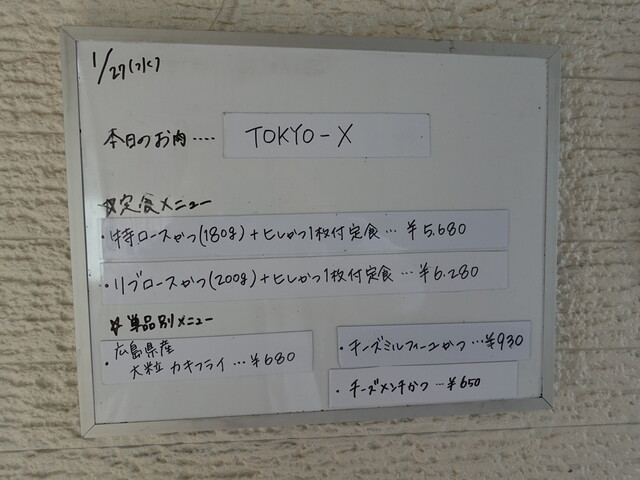 1/27(水)
本日のお肉.... TOKYO-X
☆定食メニュー
・特ロースかつ(180g)+ヒレかつ1枚付定食…¥5,680
・リブロースかつ(200g)+ヒレかつ1枚付定食…¥6,280
☆単品別メニュー
・広島県産
大粒カキフライ…¥680
・チーズミルフィーユかつ…¥930
・チーズメンチかつ…¥650